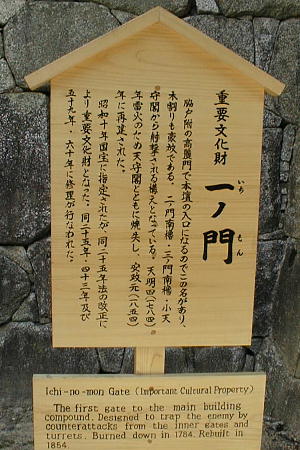 重要文化財
一ノ門
いち
もん
脇戸附の高麗門で本壇の入口になるのでこの名があり、
木割りも豪放である。二ノ門南櫓・三ノ門南櫓・小天
守閣から射撃される構えとなっている。天明四(一七八四)
年雷火のため天守閣とともに焼失し、安政元(一八五四)
年に再建された。
昭和十年国宝に指定されたが、同二十五年法の改正に
より重要文化財となった。同二十五年・四十三年及び
五十九年・六十年に修理が行なわれた。
Ichi-no-mon Gate (Important Cultural Property)
The first gate to the main building
compound. Designed to trap the enemy by
counterattacks from the inner gates and
turrets. Burned down in 1784. Rebuilt in
1854.